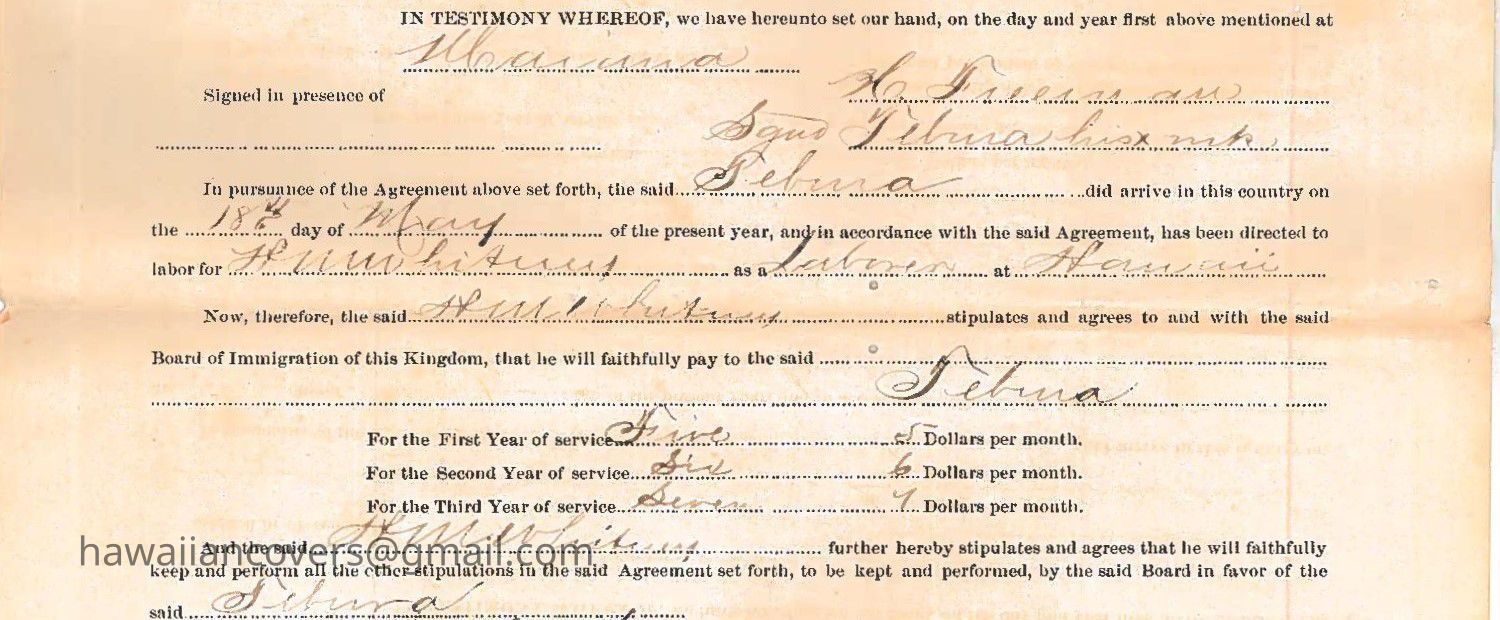 IN TESTIMONY WHEREOF, we have hereunto set our hand, on the day and year first above mentioned at
Maiana
Signed in presence of
H. Freeman
Sgnd Tebura his x mk
In pursuance of the Agreement above set forth, the said Tebura did arrive in this country on
the 18th day of May of the present year, and in accordance with the said Agreement, has been directed to
labor for H M Whitney as a Laborer at Hawaii
Now, therefore, the said H M Whitney stipulates and agrees to and with the said
Board of Immigration of this Kingdom, that he will faithfully pay to the said
Tebura
For the First Year of service Five 5 Dollars per month.
For the Second Year of service Six 6 Dollars per month.
For the Third Year of service Seven 7 Dollars per month.
And the said H M Whitney further hereby stipulates and agrees that he will faithfully
hawaiiancovers@gmail.com
keep and perform all the other stipulations in the said Agreement set forth, to be kept and performed, by the said Board in favor of the
said Tebura